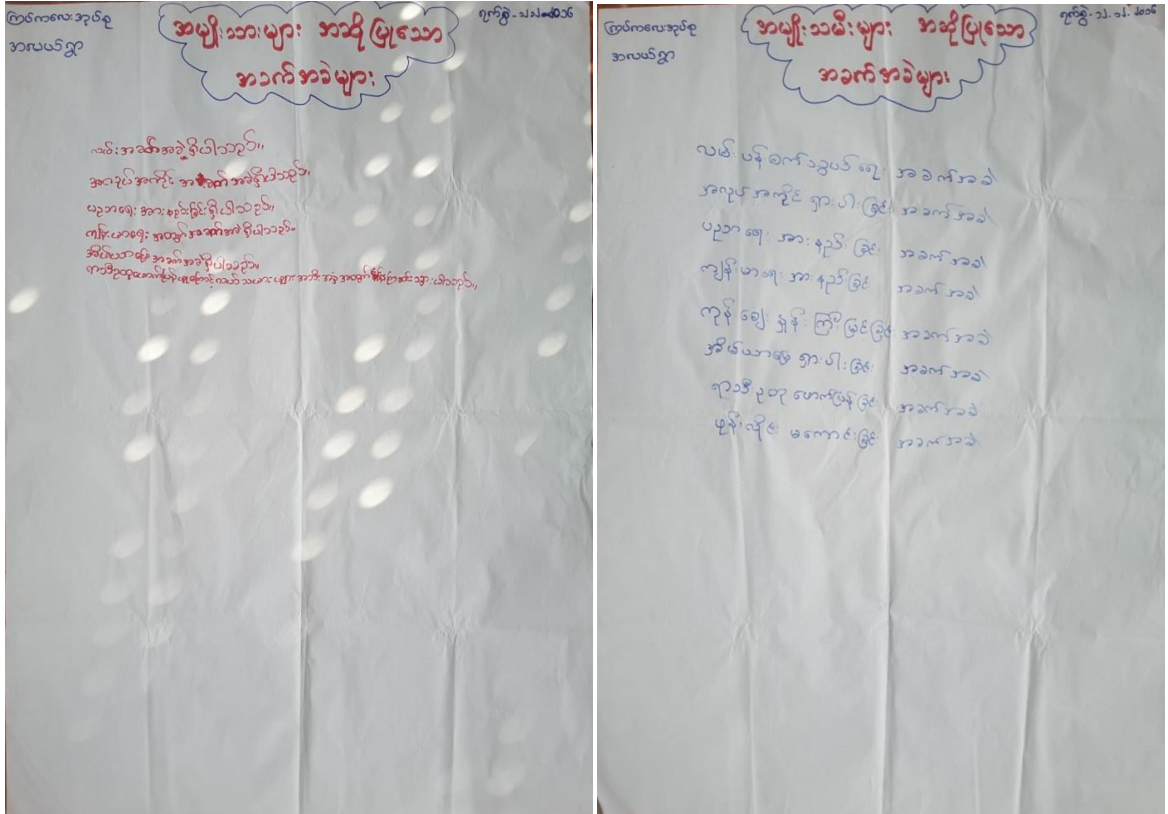 ကြပ်ကလေးအုပ်စု
အလယ်ရွာ
အမျိုးသားများ အဆိုပြုသော
အခက်အခဲများ
လမ်းအခက်အခဲရှိပါသည်။
အလုပ်အကိုင် အခက်အခဲရှိပါသည်။
ပညာရေး အားနည်းခြင်းရှိပါသည်။
ကျန်းမာရေး အတွက်အခက်အခဲရှိပါသည်။
အိမ်ယာမြေ အခက်အခဲရှိပါသည်။
ရာသီဥတုဖောက်ပြန်
ကြပ်ကလေးအုပ်စု
အလယ်ရွာ
ရက်စွဲ - ၁၂.၁၂.၂၀၁၆
အမျိုးသမီးများ အဆိုပြုသော
အခက်အခဲများ
လမ်းပန်းဆက်သွယ်ရေး အခက်အခဲ
အလုပ်အကိုင် ရှားပါးခြင်း အခက်အခဲ
ပညာရေး အားနည်းခြင်း အခက်အခဲ
ကျန်းမာရေး အားနည်းခြင်း အခက်အခဲ
ကုန်ဈေးနှုန်းကြီးမြင့်ခြင်း အခက်အခဲ
အိမ်ယာမြေ ရှားပါးခြင်း အခက်အခဲ
ရာသီဥတု ဖောက်ပြန်ခြင်း အခက်အခဲ
ဖုန်းလိုင်း မကောင်းခြင်း အခက်အခဲ